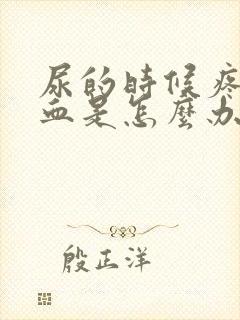 尿的時候疼
血是怎麼办
殷正洋